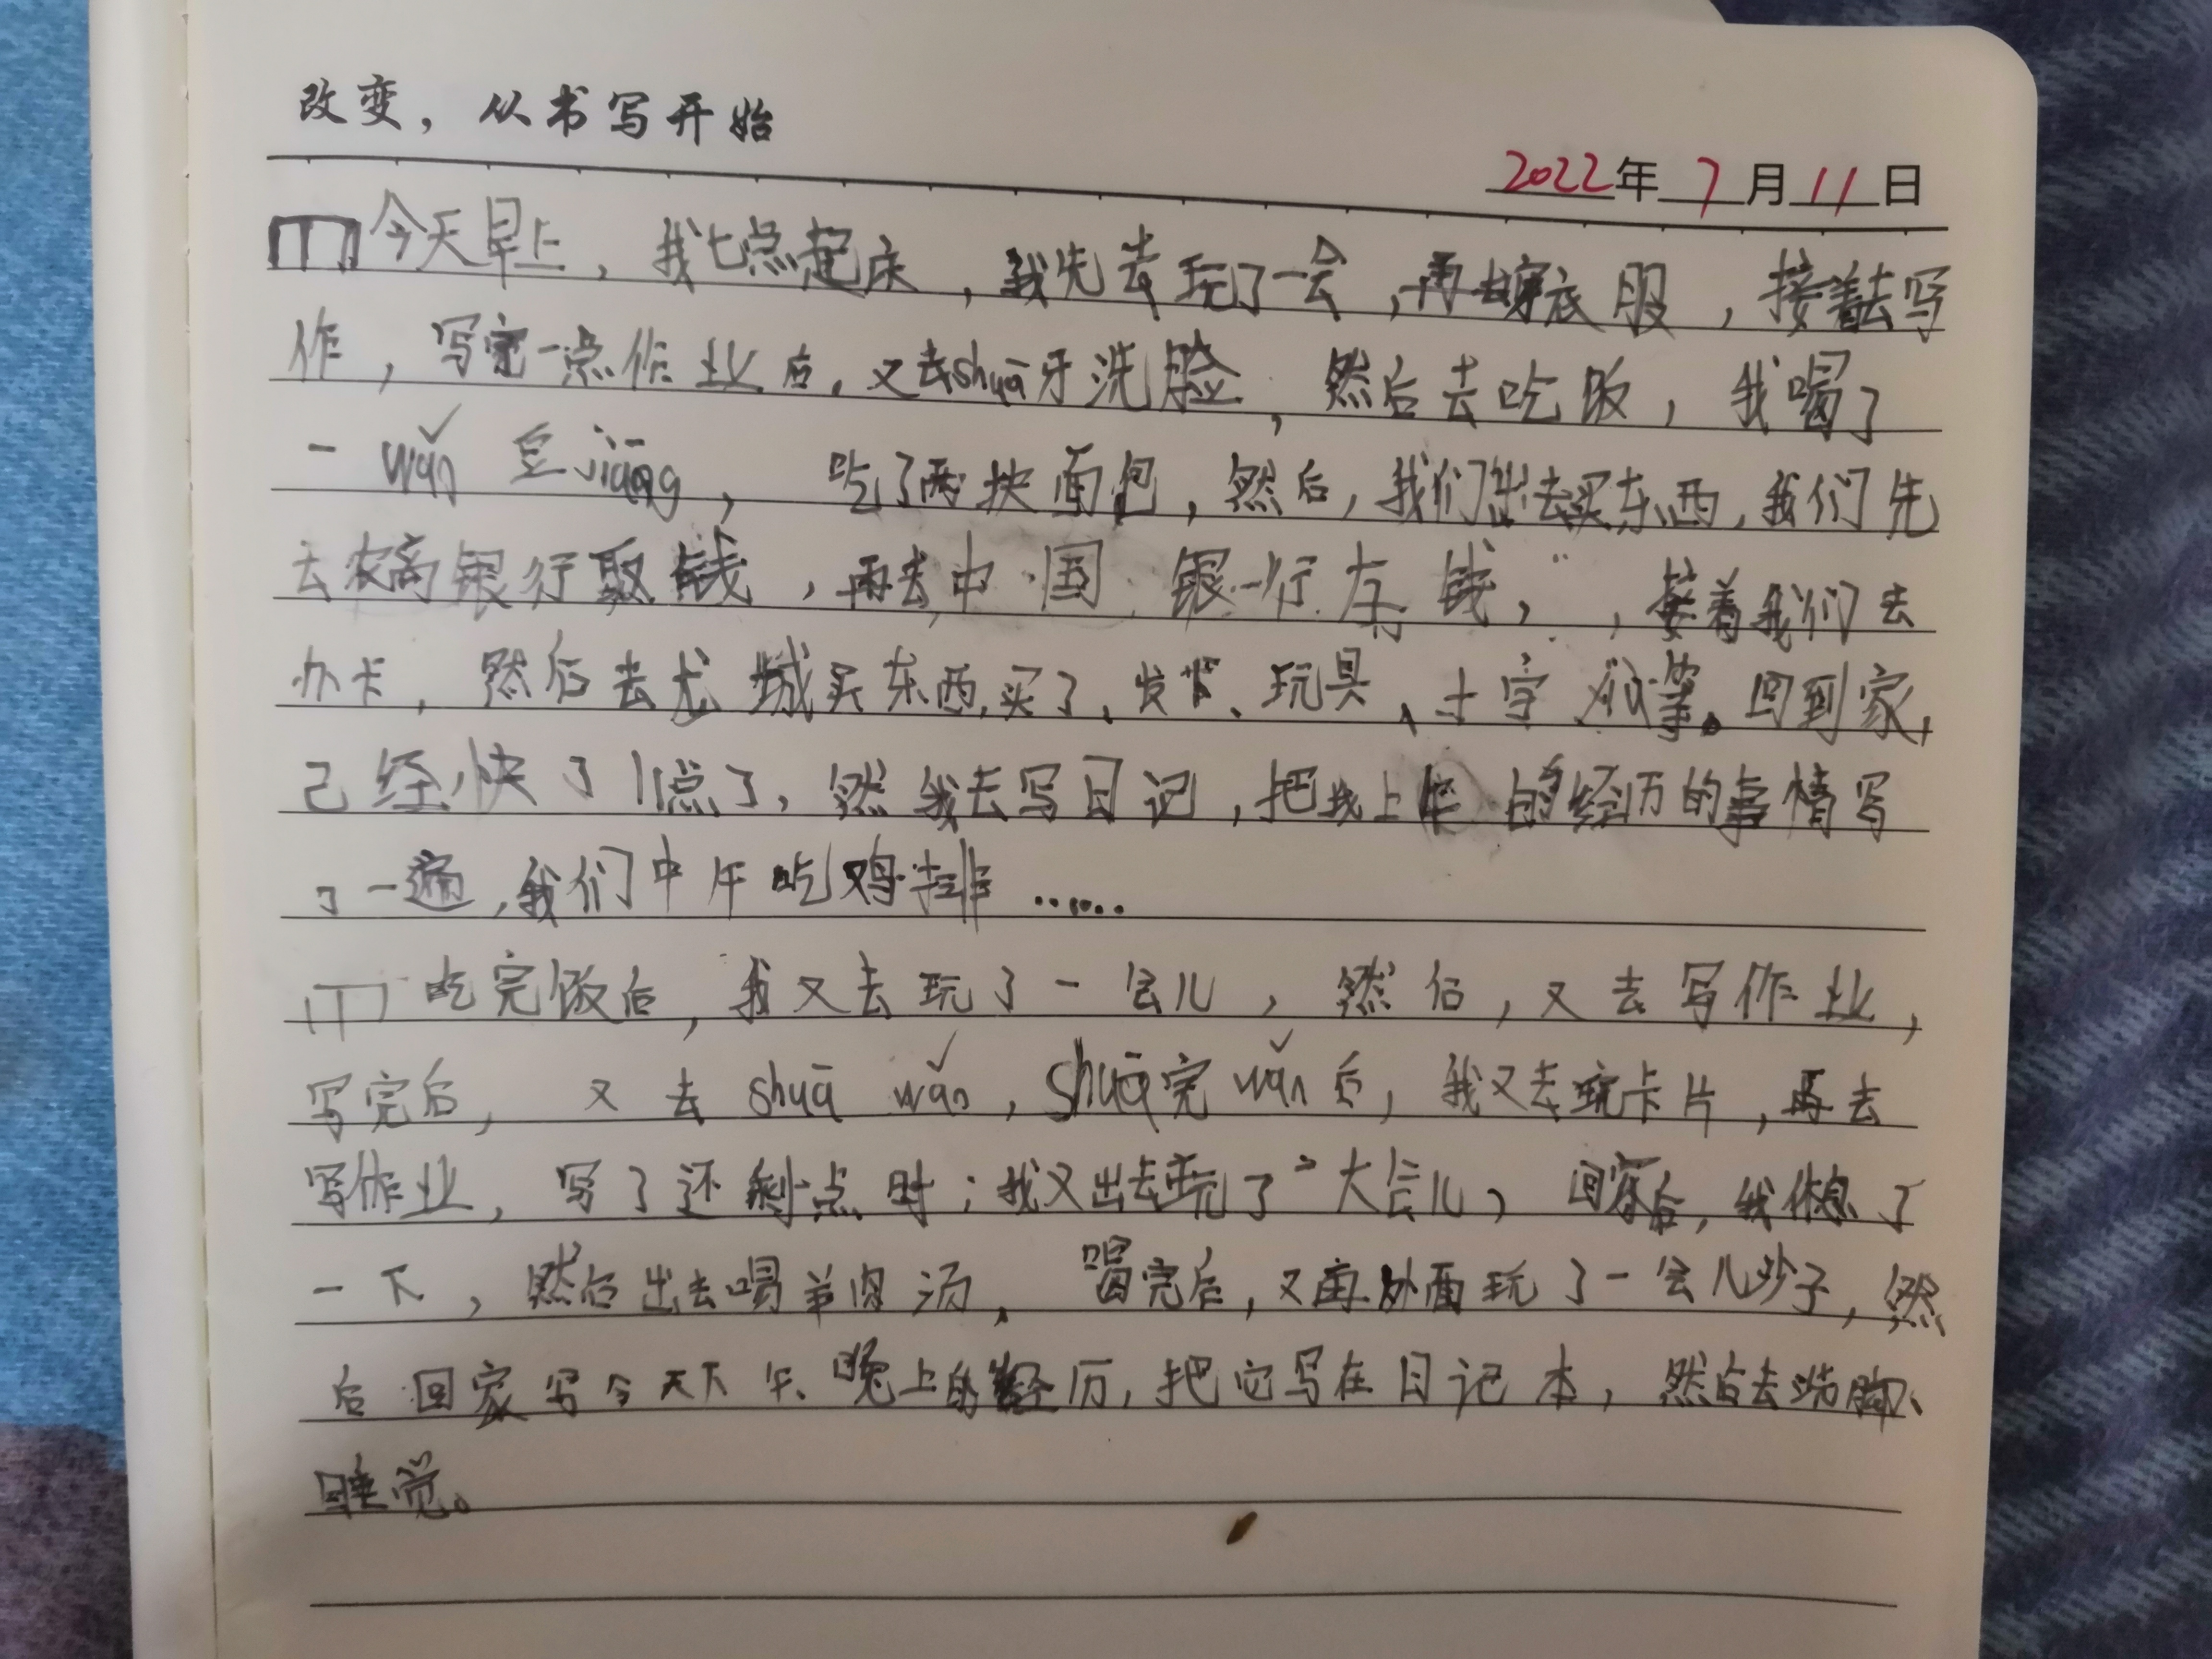 改变，从书写开始
2022年7月11日
今天早上，我七点起床，我先去玩了一会，再去穿衣服，接着去写
作，写完一点作业后，又去shuā牙洗脸，然后去吃饭，我喝了
一wǎn豆jiāng，吃了两块面包，然后，我们出去买东西，我们先
去农商银行取钱，再去中国银行存钱，，接着我们去
办卡，然后去龙城买东西，买了、发 、玩具、十字 笔。回到家，
己经快了11点了，然我去写日记，把我上午的经历的事情写
了一遍，我们中午吃鸡排……
吃完饭后，我又去玩了一会儿，然后，又去写作业，
写完后，又去shuā wǎn，shuā完wǎn后，我又去玩卡片，再去
写作业，写了还剩一点时；我又出去玩了一大会儿，回家后，我休息了
一下，然后出去喝羊肉汤，喝完后，又再外面玩了一会儿沙子，然
后回家写今天下午、晚上的经历，把它写在日记本，然后去洗脚、
睡觉。